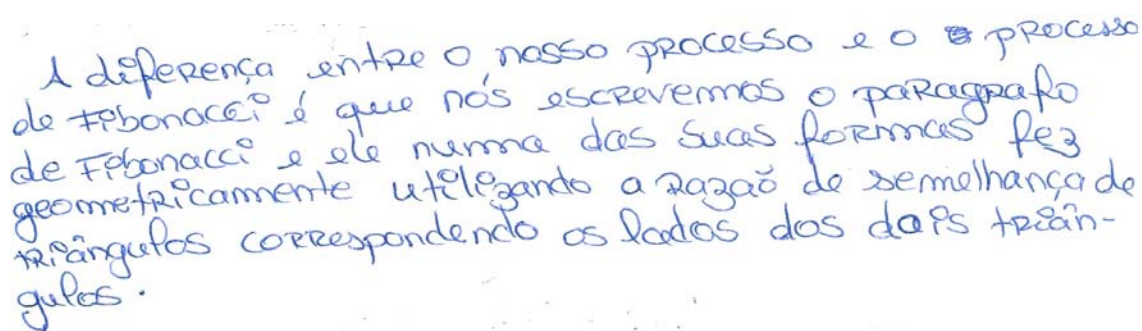 A diferença entre o nosso processo e o processo
de Fibonacci é que nós escrevemos o paragrafo
de Fibonacci e ele numa das suas formas fez
geometricamente utilizando a razaõ de semelhança de
triângulos correspondendo os lados dos dois triân-
gulos.